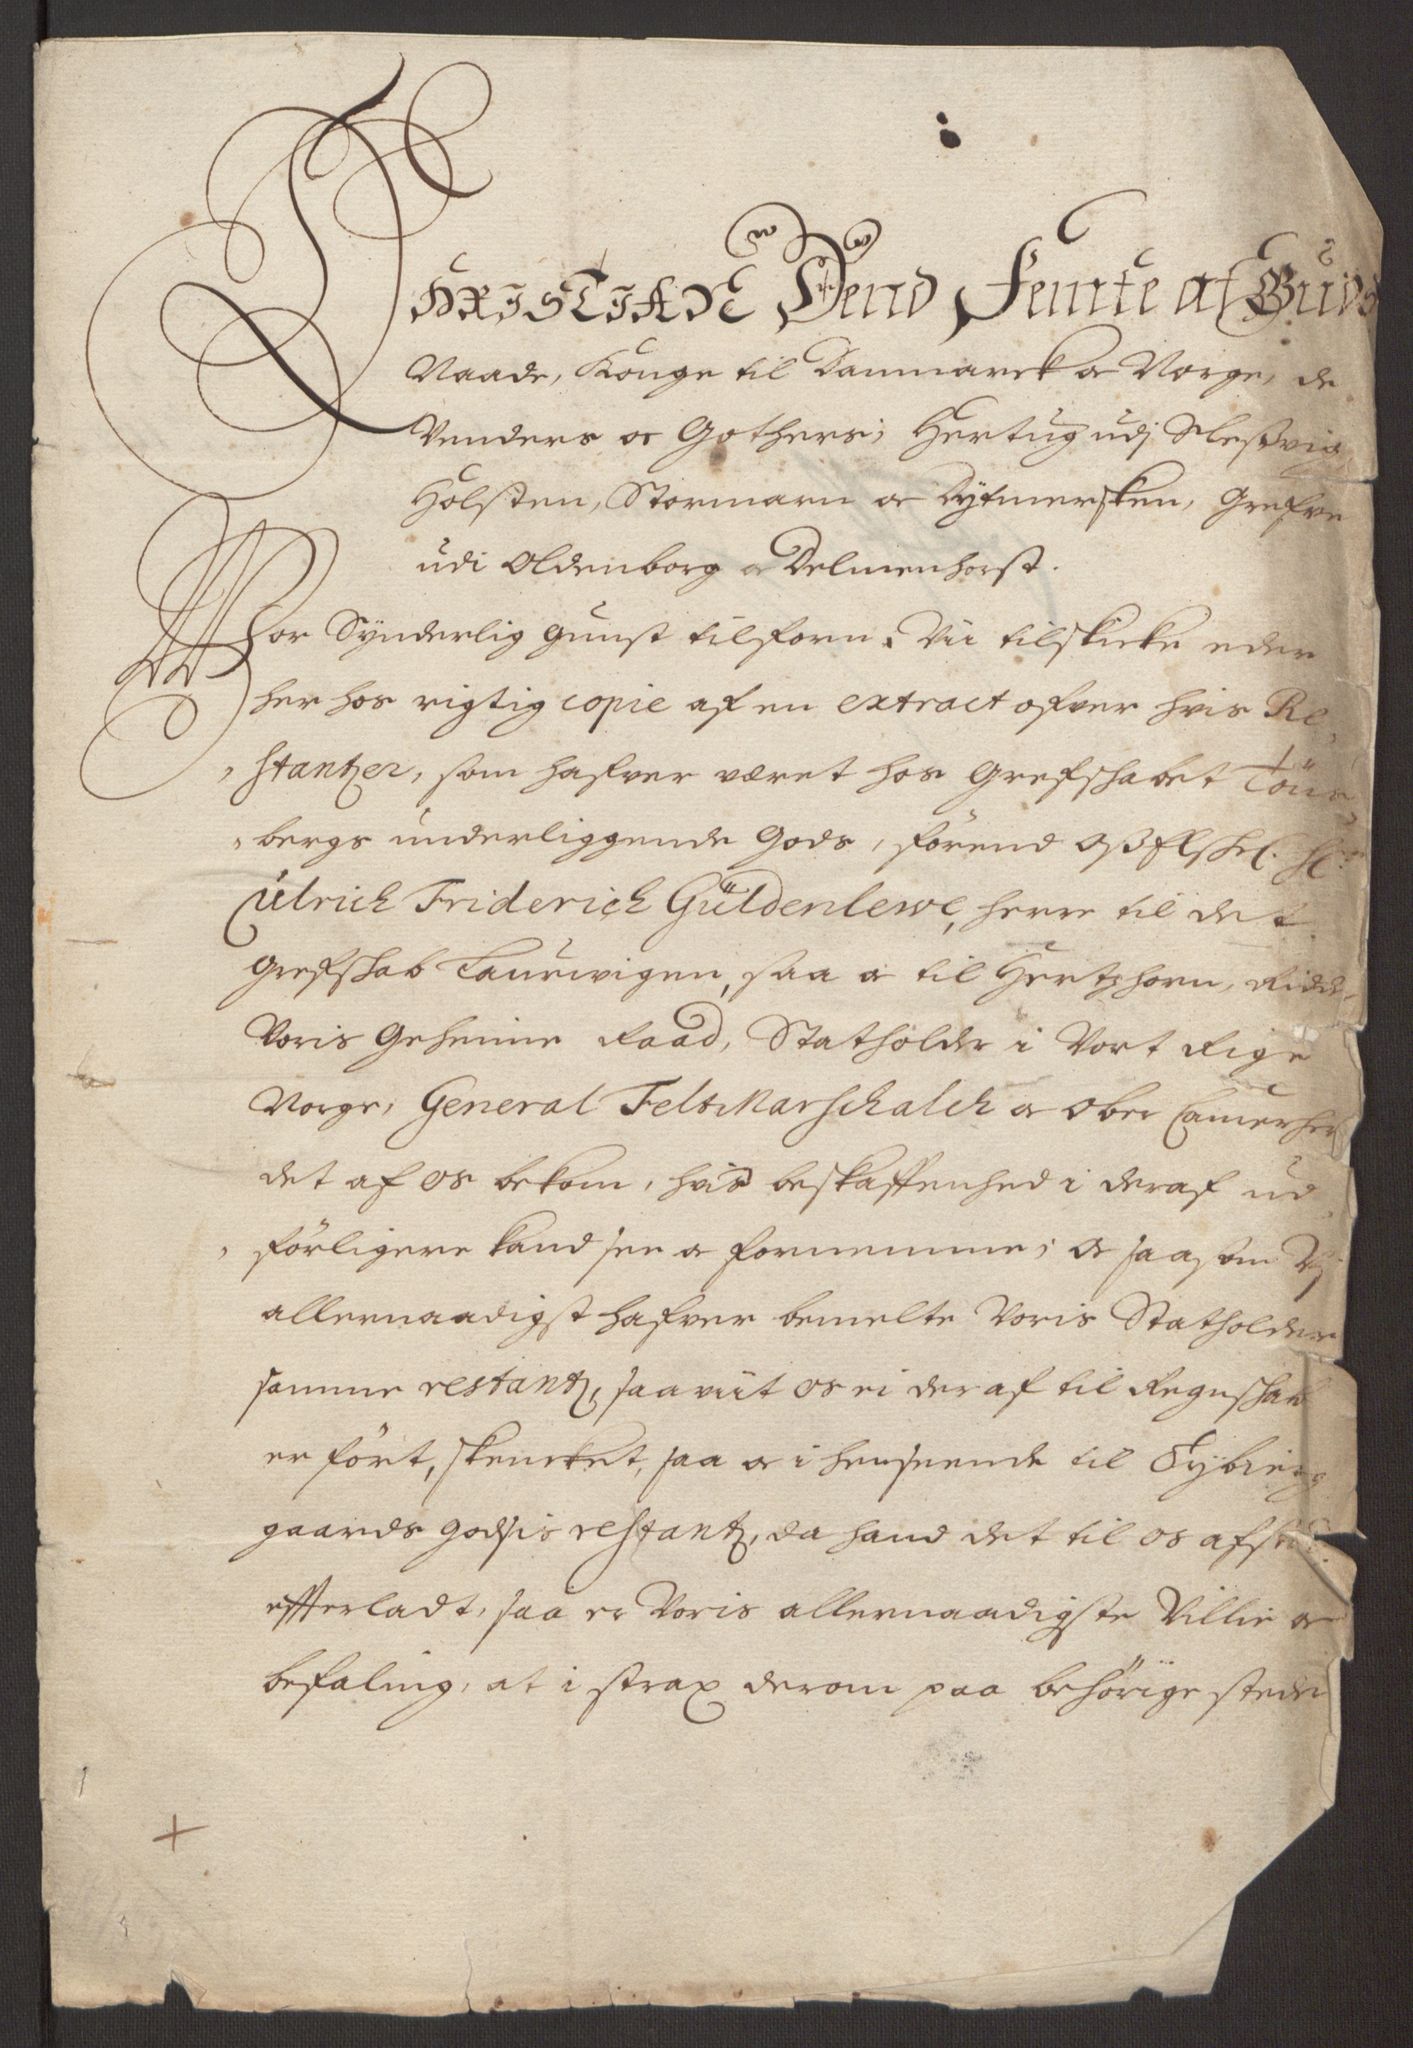 CHRISTIAN Dend Femte af Guds
Naade, Konge til Danmarck oc Norge, de
Venders oc Gothers, Hertug udj Slesvig
Holsten, Stormarn oc Dytmersken, Grefve
udi Oldenborg oc Delmenhorst.
Vor Synderlig gunst tilforn. Vii tilskicke eder
her hos rigtig copie af en extract ofver hvis Re-
stantzer, som hafver været hos Grefschabet Töns-
bergs underliggende Gods, förend Hr.
Ulrich Friderich Güldenlewe, herre til det
Grefschab Laurwigen, saa oc til Hertzhorn, Ridder
Voris Geheime Raad, Statholder i Vort Rige
Norge, General FeltMarschalch oc Ober Camerher
det af os bekom, hvis beskaffenhed i deraf ud-
förligere kand see oc fornemme; oc saasom Vj
allernaadigst hafver bemelte Voris Statholder
samme restantz, saaviit os ei deraf til Regnschab
er fört, skencket, saa oc i henseende til Sybierg
gaards godsis restantz, da hand det til os afstod
efterladt, saa er Voris allernaadigste Villie oc
befaling, at i strax derom paa behörige steder